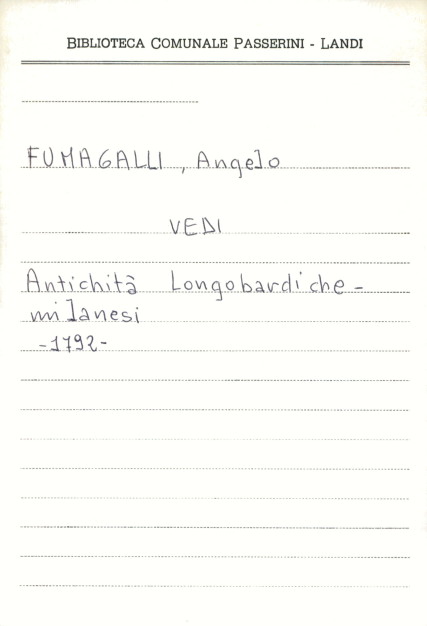 BIBLIOTECA COMUNALE PASSERINI - LANDI
FUMAGALLI, Angelo
VEDI
Antichità Longobardiche-
milanesi
-1792-